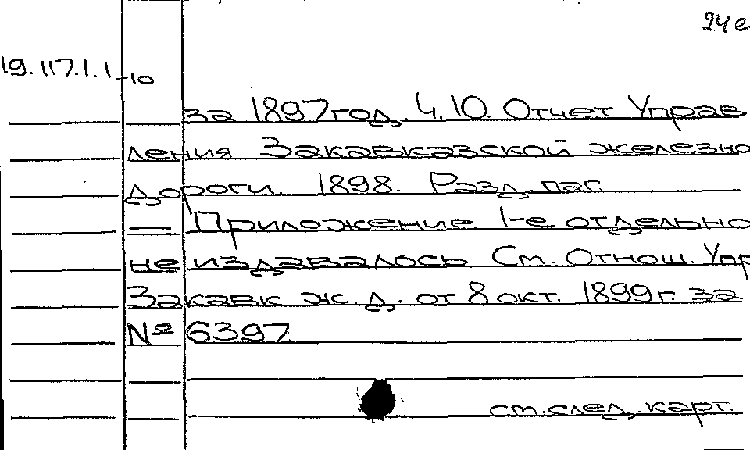 24 е
19.117.1.1-10
за 1897 год. Ч.10. Отчет Управ
ления Закавказской железно
дороги. 1898. Разд. паг.
— Приложение 1-е отдельно
не издавалось. См. Отнош. Упр
Закавк ж.д. от 8 окт. 1899 г. за
№ 6397
см. след. карт.